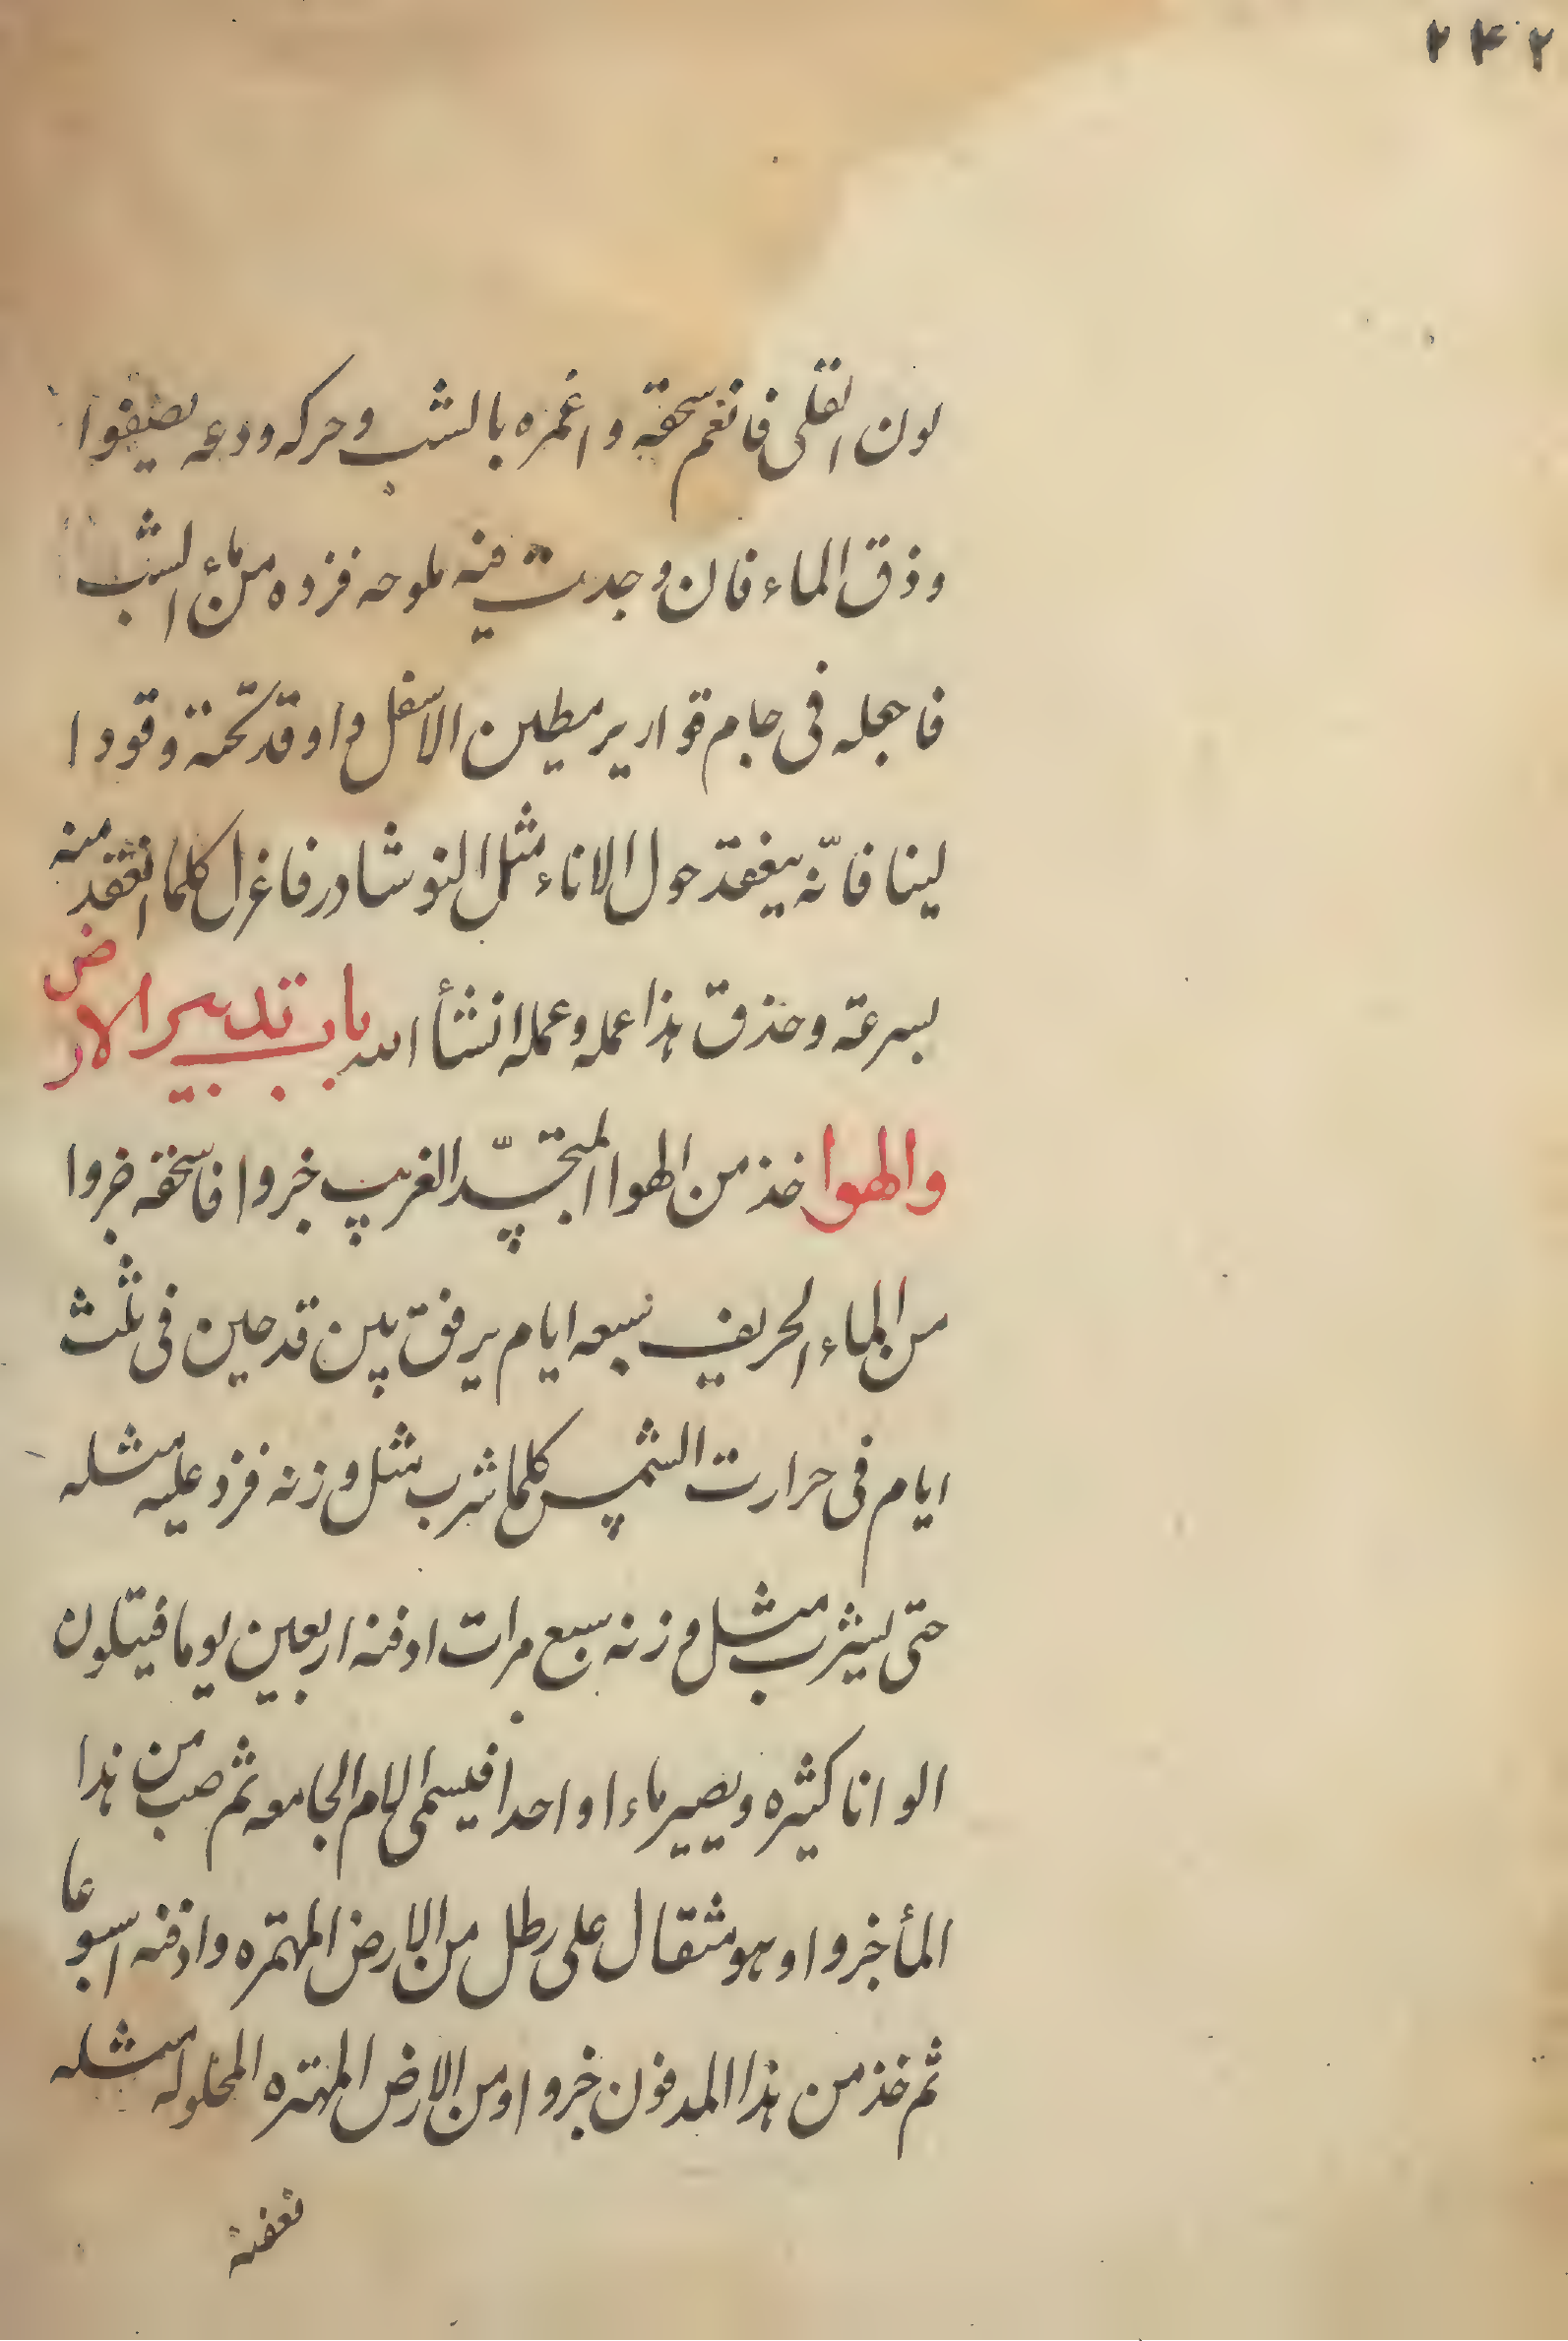 ۲۴۲
لون القلى فانغم سحقه واغمره بالشب وحركه ودعه يصيفوا
وذق الماء فان وجدت فيه ملوحه فزده من ماء الشب
فاجعله فى جام قوارير مطين الاسفل واوقد تحته وقودا
لينا فانّه ينعقد حول الاناء مثل النوشادر فاغرل كلما انعقد منه
بسرعة وحذق هذا عمله وعمله انشأ الله باب تدبير الارض
والهوا خذ من الهوا المتجسّد الغريب جزوا فاسحقه جزوا
من الماء الحريف سبعه ايام برفق بين قدحين فى ثلث
ايام فى حرارت الشمس كلما شرب مثل وزنه فزد عليه مثله
حتى يشرب مثل وزنه سبع مرات ادفنه اربعين يوما فيتلون
الوانا كثيره ويصير ماءا واحدا فيسمى الام الجامعه ثم صب من هذا
المأ جزوا وهو مثقال على رطل من الارض المهتره وادفنه اسبوعا
ثم خذ من هذا المدفون جزوا ومن الارض المهتره المحلوله مثله
نعفنه